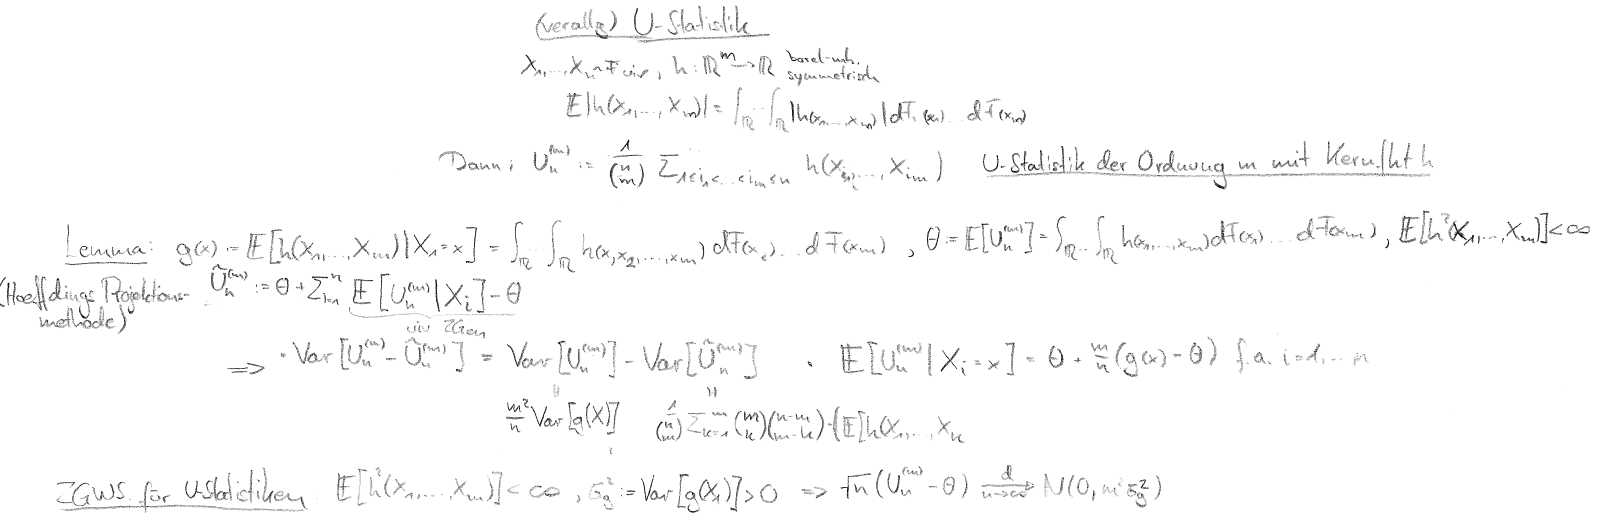 (verallg) U-Statistik
X₁,...,Xₙ ~ F uiv, h: ℝᵐ → ℝ borel-mb. symmetrisch
𝔼|h(X₁,...,Xₘ)| = ∫_ℝ ... ∫_ℝ |h(x₁,...,xₘ)| dF(x₁) ... dF(xₘ)
Dann: Uₙ⁽ᵐ⁾ := 1/(n m) Σ_{1≤i₁<...<iₘ≤n} h(X_{i₁},...,X_{iₘ}) U-Statistik der Ordnung m mit Kernfkt h
Lemma: g(x) := 𝔼[h(X₁,...,Xₘ)|X₁=x] = ∫_ℝ ... ∫_ℝ h(x,x₂,...,xₘ) dF(x₂) ... dF(xₘ), θ := 𝔼[Uₙ⁽ᵐ⁾] = ∫_ℝ ... ∫_ℝ h(x₁,...,xₘ) dF(x₁) ... dF(xₘ), 𝔼[h²(X₁,...,Xₘ)] < ∞
(Hoeffdings Projektionsmethode) Ũₙ⁽ᵐ⁾ := θ + Σᵢ₌₁ⁿ 𝔼[Uₙ⁽ᵐ⁾|Xᵢ] - θ
uiv ZGen
⇒ · Var[Uₙ⁽ᵐ⁾ - Ũₙ⁽ᵐ⁾] = Var[Uₙ⁽ᵐ⁾] - Var[Ũₙ⁽ᵐ⁾] · 𝔼[Uₙ⁽ᵐ⁾|Xᵢ=x] = θ + m/n (g(x) - θ) f.a. i=1,...,n
m²/n Var[g(X)] 1/(n m) Σₖ₌₁ᵐ (m k)(n-m m-k)·(𝔼[h(X₁,...,Xₖ
ZGWS für U-Statistiken 𝔼[h²(X₁,...,Xₘ)] < ∞, σ_g² := Var[g(X₁)] > 0 ⇒ √n (Uₙ⁽ᵐ⁾ - θ) →ᵈ_{n→∞} N(0, m²σ_g²)